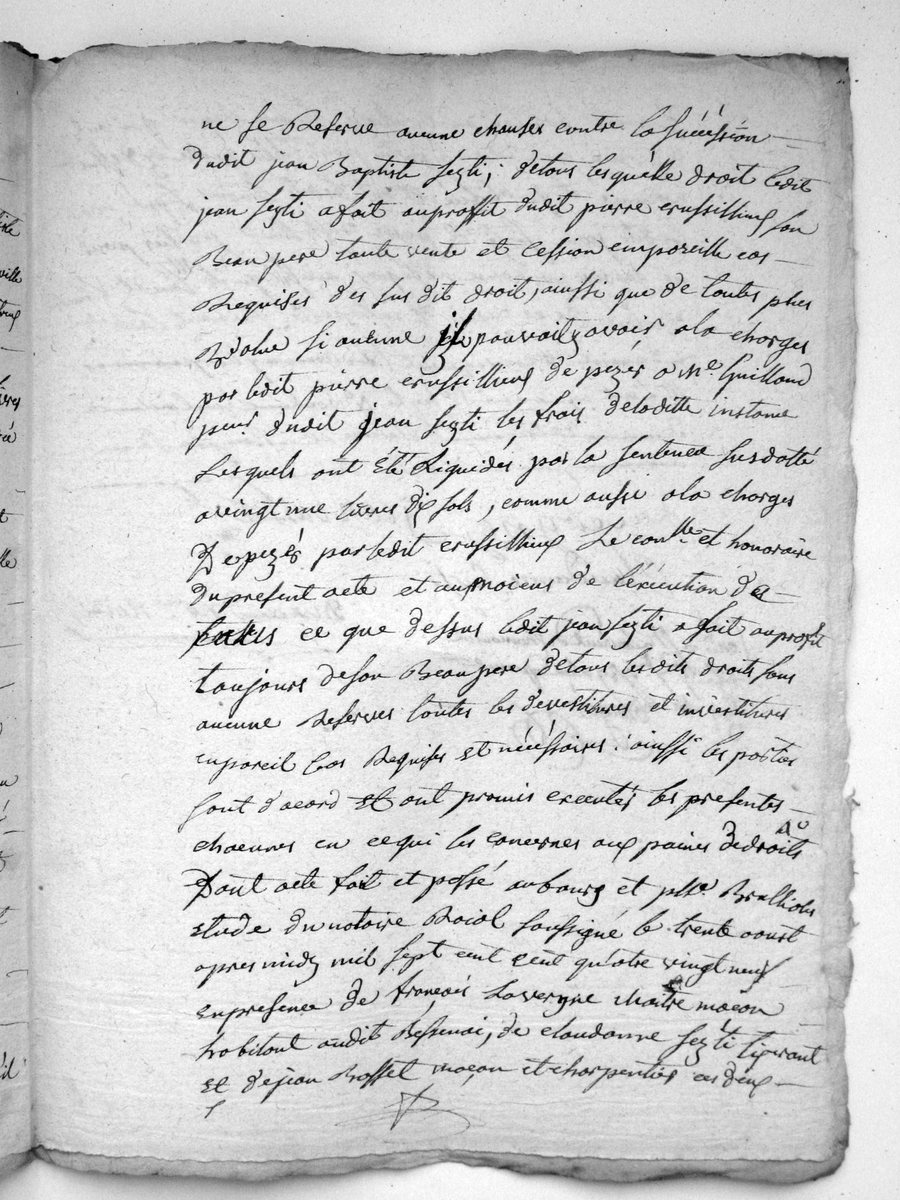 ne se Reserve aucune chauses contre la sucéssion
dudit jean Baptiste sezti; detous lesquélle droit ledit
jean sezti a fait auproffit dudit pierre crussillieux son
Beau pere toute vente et cession empareille cas
Requises des sus dit droit, ainssi que de toutes plus
value si aucune il pouvoit y avoir a la charges
par ledit pierre crussillieux de pezer a Me Guilloud
peur. dudit jean sezti les frais deladitte instance
Lesquels ont été Liquidés par la sentence susdatté
avingt une livres dix sols, comme aussi ala charges
De pezér par ledit crussillieux Le conlle. et honoraire
Du present acte et aumoiens de l'éxécution de
ce que dessus ledit jean sezti a fait auprofit
toujours deson Beau pere detous lesdits droits sans
aucune Reserves toutes les devestitures et investitures
enpareil Cas Requises et nécéssaires: ainssi les parties
sont d'acord et ont promis executér les presentes
chacunes en cequi les concernes aux paines dedroits
Dont acte fait et passé aubourg et psse. Brullioles
etude du notaire Raial soussigné le trente aoust
apres midy mil sept cent cent quatre vingt neuf
enpresence de françois Lavergne maitre maçon
habitant audit Bessenai, de claudanne sezti tisserant
et de jean Rosset maçon et charpentier en deux